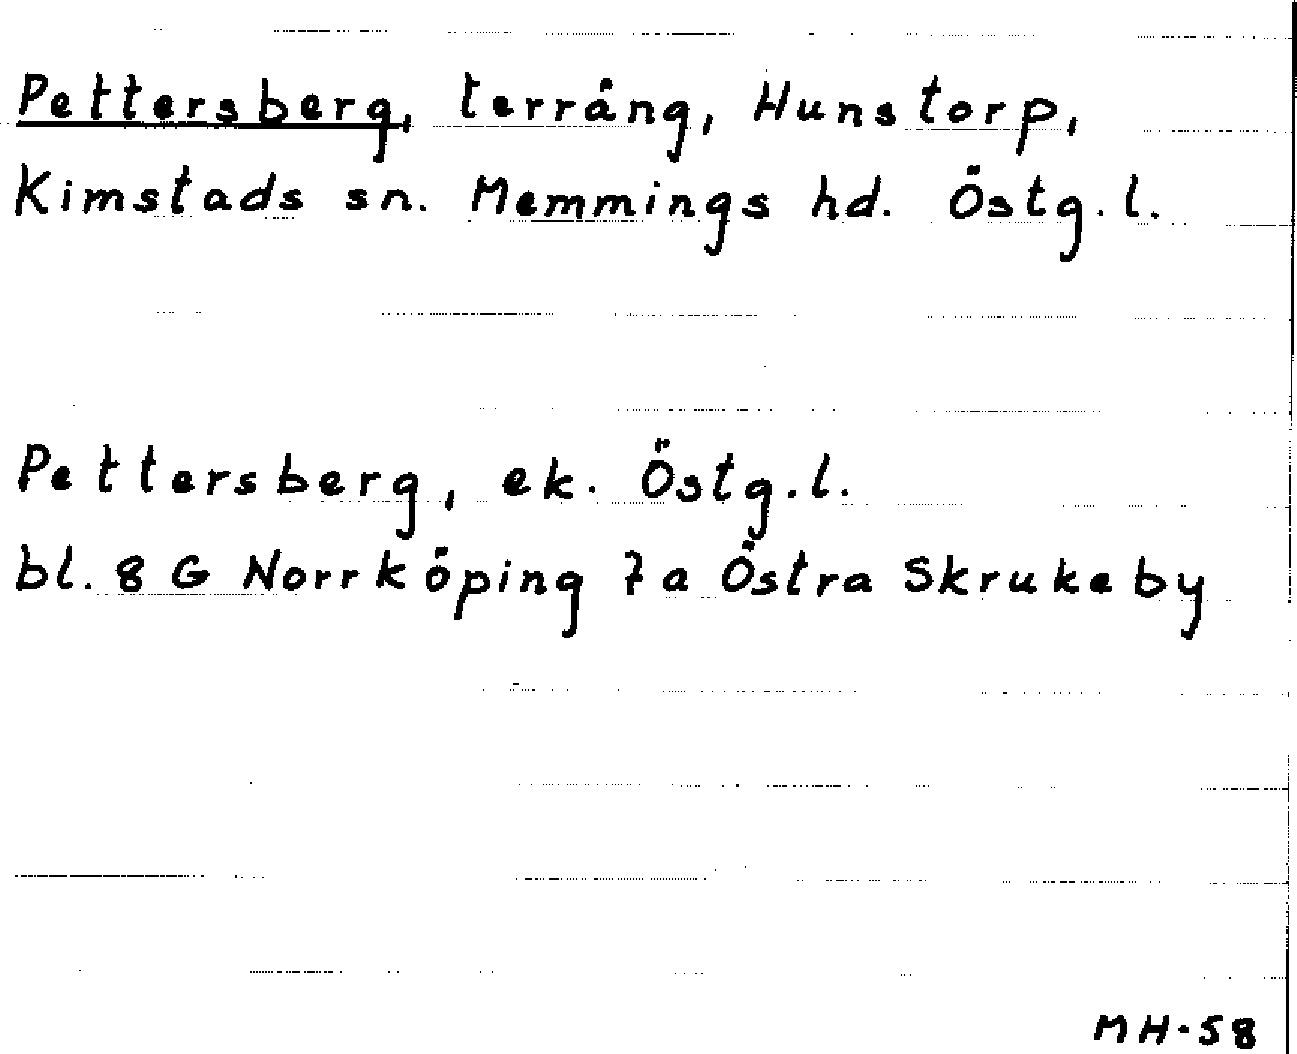 Pettersberg, terräng, Hunstorp,
Kimstads sn. Memmings hd. Östg.l.
Pettersberg, ek. Östg.l.
bl. 8 G Norrköping 7a Östra Skrukeby
MH-58